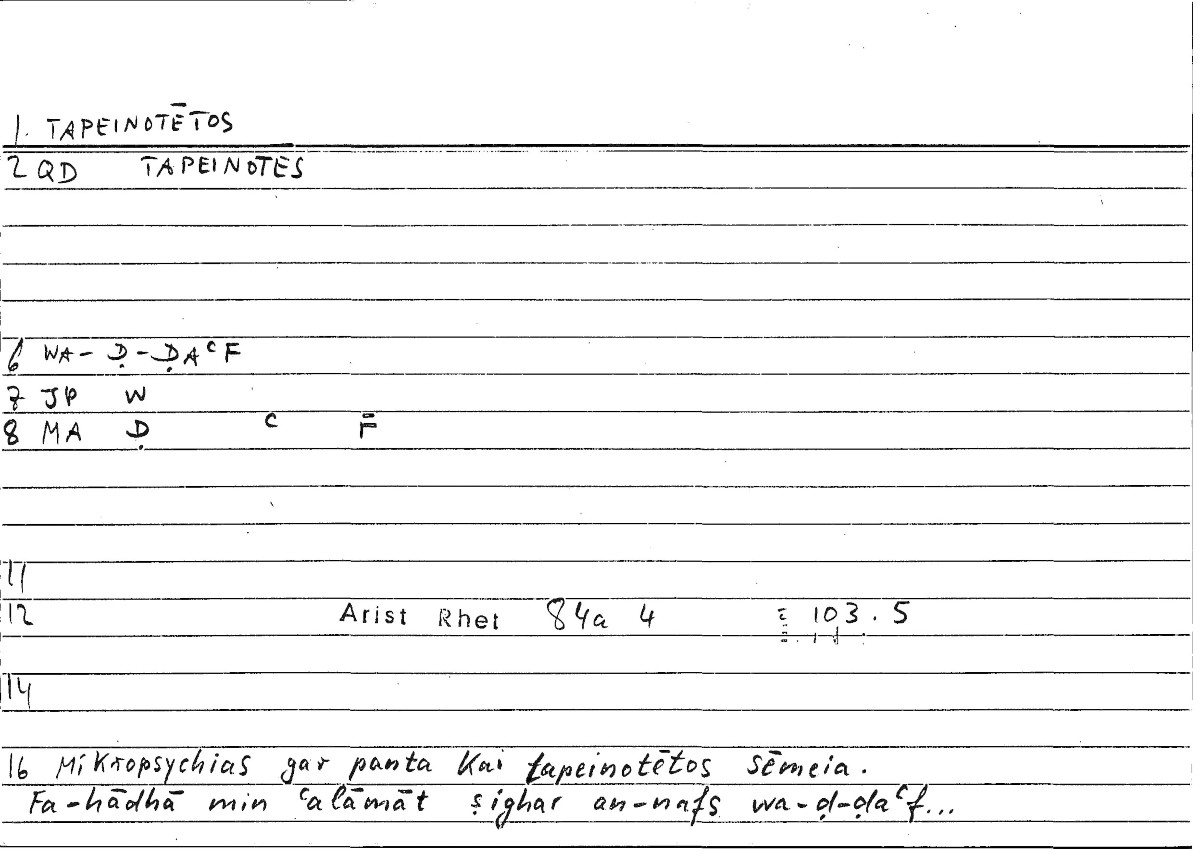 1. TAPEINOTĒTOS
2 QD TAPEINOTES
6 WA-Ḍ-ḌAᶜF
7 JP W
8 MA Ḍ ᶜ F̄
11
12 Arist Rhet 84a 4 103.5
14
16 Mikropsychias gar panta kai tapeinotētos sēmeia.
Fa-hādhā min ᶜalāmāt ṣighar an-nafs wa-ḍ-ḍaᶜf...